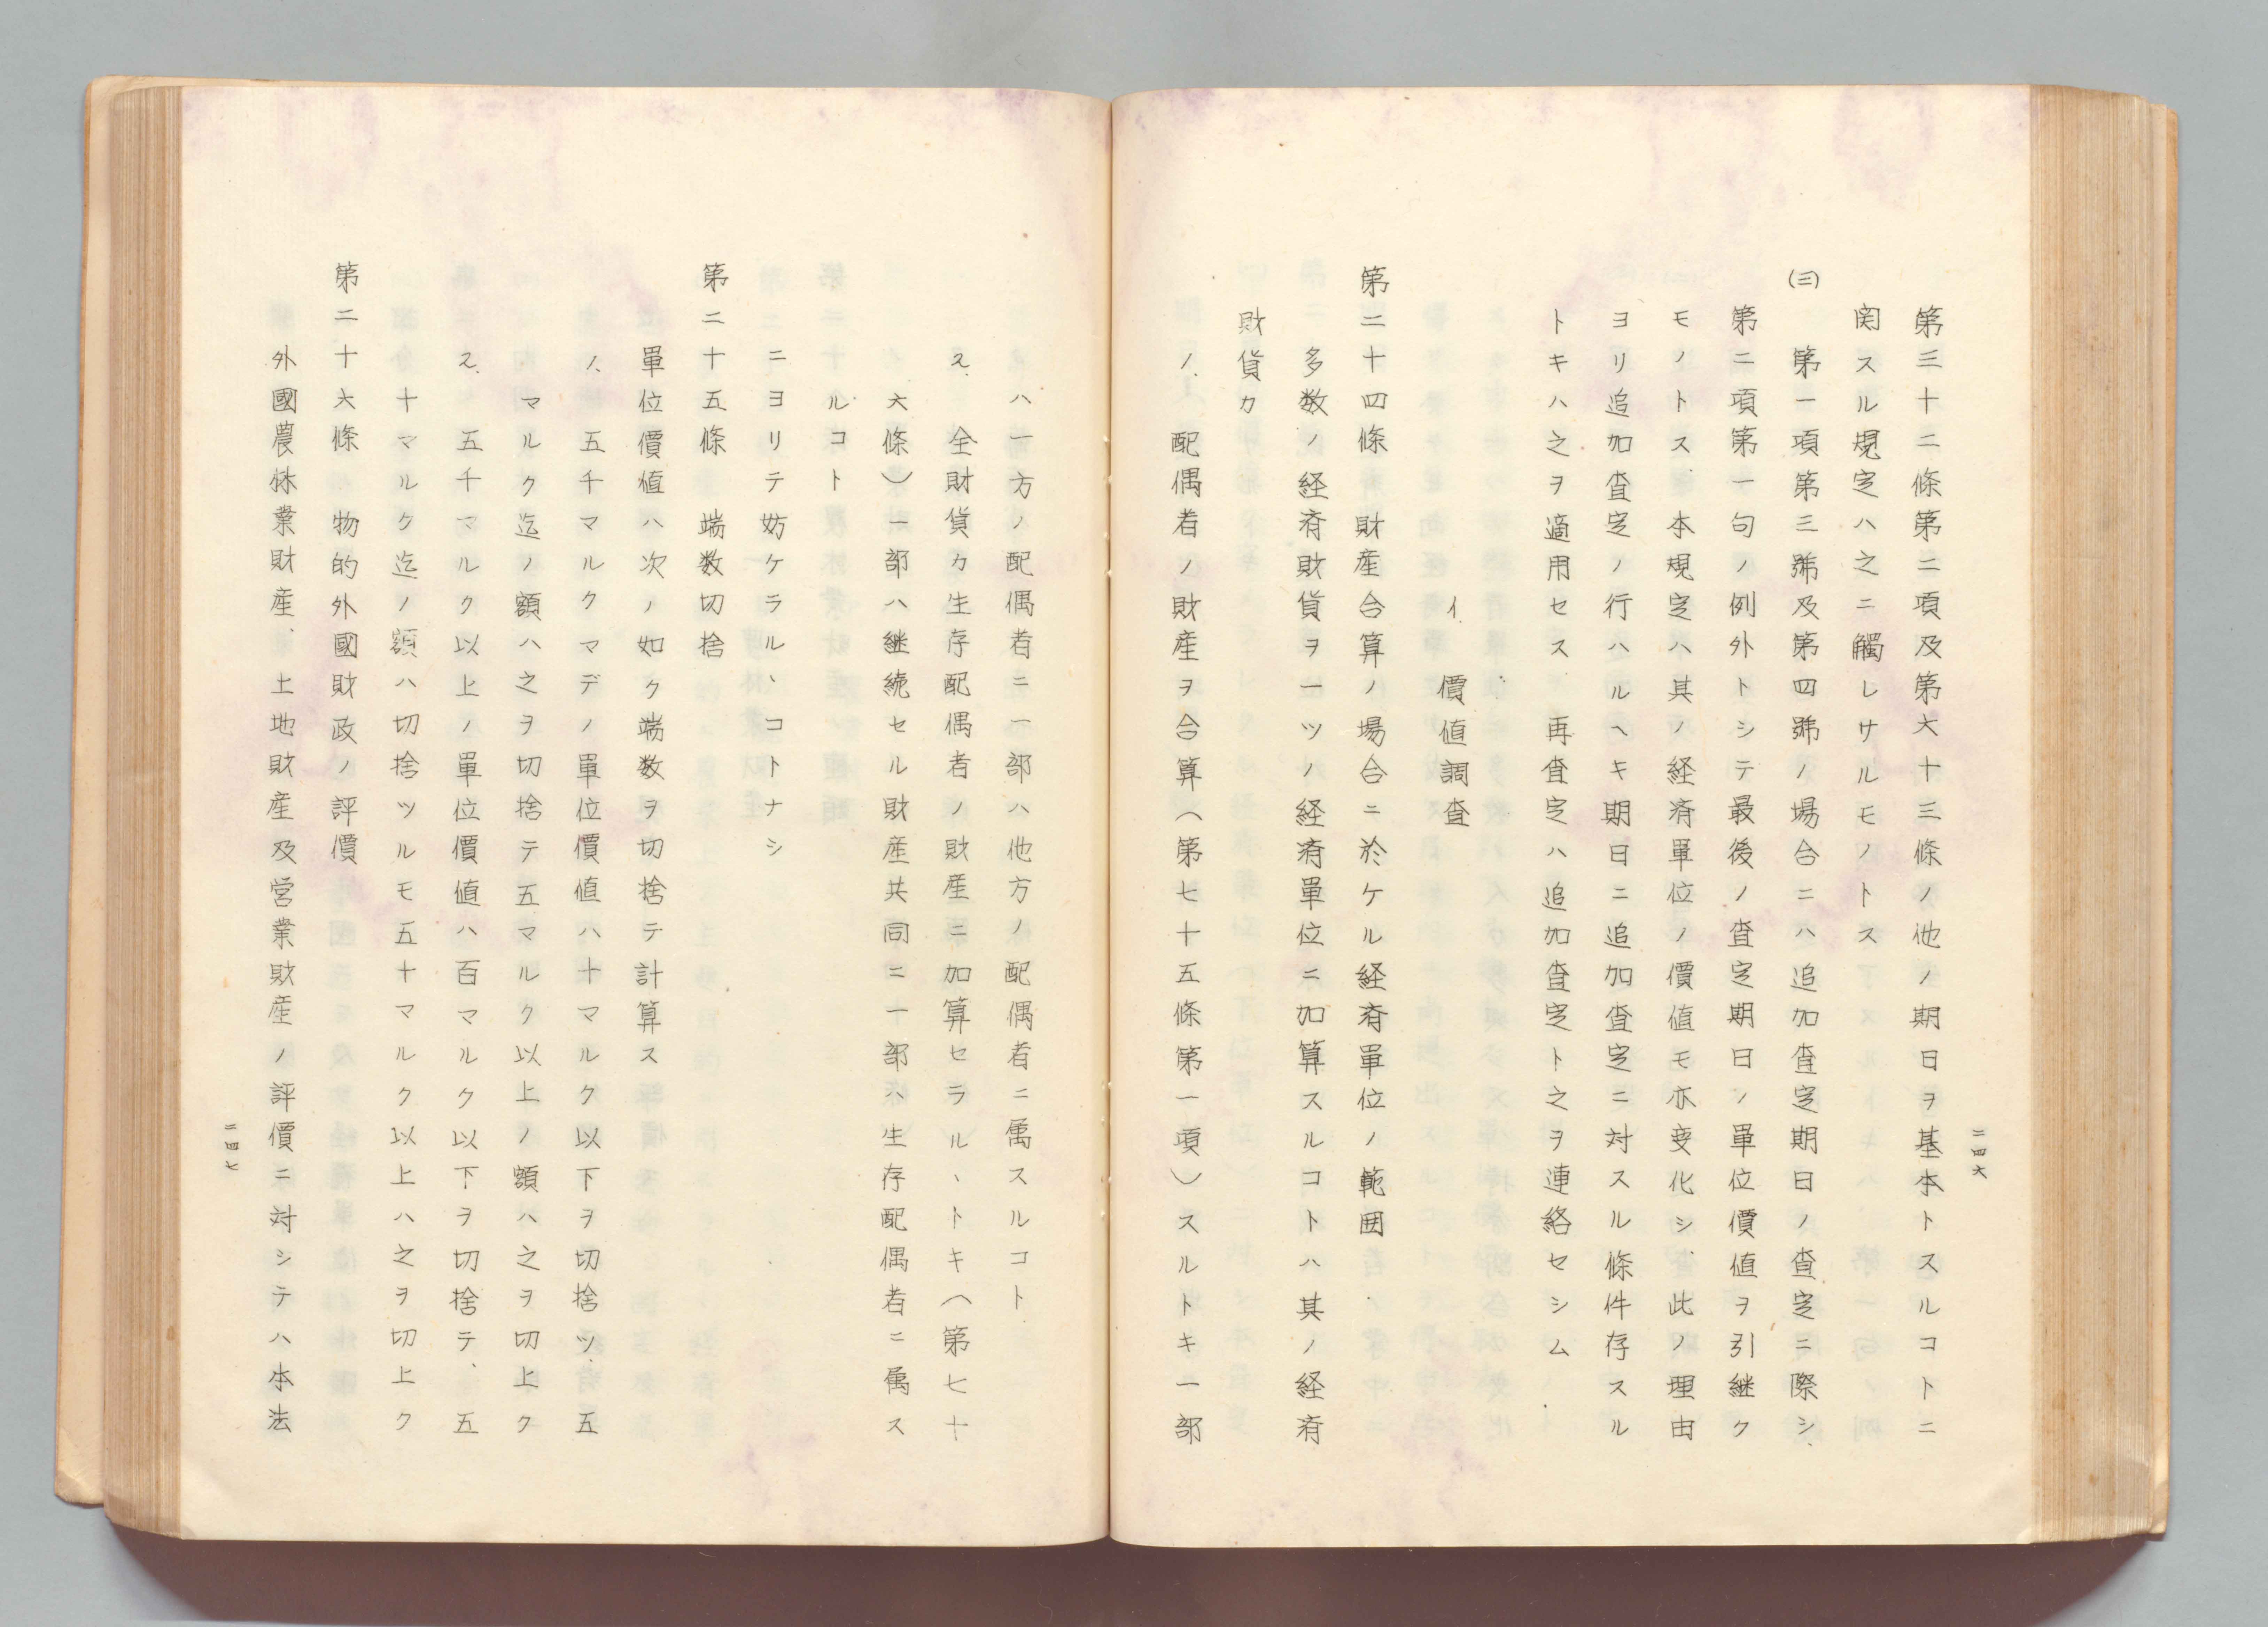 第三十二條第二項及第六十三條ノ他ノ期日ヲ基本トスルコトニ
関スル規定ハ之ニ觸レサルモノトス
(三)　第一項第三號及第四號ノ場合ニハ追加査定期日ノ査定ニ際シ、
第二項第一句ノ例外トシテ最後ノ査定期日ノ單位價値ヲ引継ク
モノトス、本規定ハ其ノ経済單位ノ價値モ亦変化シ、此ノ理由
ヨリ追加査定ノ行ハルヘキ期日ニ追加査定ニ対スル條件存スル
トキハ之ヲ適用セス　再査定ハ追加査定ト之ヲ連絡セシム
イ、價値調査
第二十四條　財産合算ノ場合ニ於ケル経済單位ノ範囲
多数ノ経済財貨ヲ一ツノ経済單位ニ加算スルコトハ其ノ経済
財貨カ
1、配偶者ノ財産ヲ合算（第七十五條第一項）スルトキ一部
二四六
ハ一方ノ配偶者ニ一部ハ他方ノ配偶者ニ属スルコト
2、全財貨カ生存配偶者ノ財産ニ加算セラルヽトキ（第七十
六條）一部ハ継続セル財産共同ニ一部ハ生存配偶者ニ属ス
ルコト
ニヨリテ妨ケラルヽコトナシ
第二十五條　端数切捨
單位價値ハ次ノ如ク端数ヲ切捨テ計算ス
1、五千マルクマデノ單位價値ハ十マルク以下ヲ切捨ツ、五
マルク迄ノ額ハ之ヲ切捨テ五マルク以上ノ額ハ之ヲ切上ク
2、五千マルク以上ノ單位價値ハ百マルク以下ヲ切捨テ、五
十マルク迄ノ額ハ切捨ツルモ五十マルク以上ハ之ヲ切上ク
第二十六條　物的外國財政ノ評價
外國農林業財産、土地財産及営業財産ノ評價ニ対シテハ本法
二四七